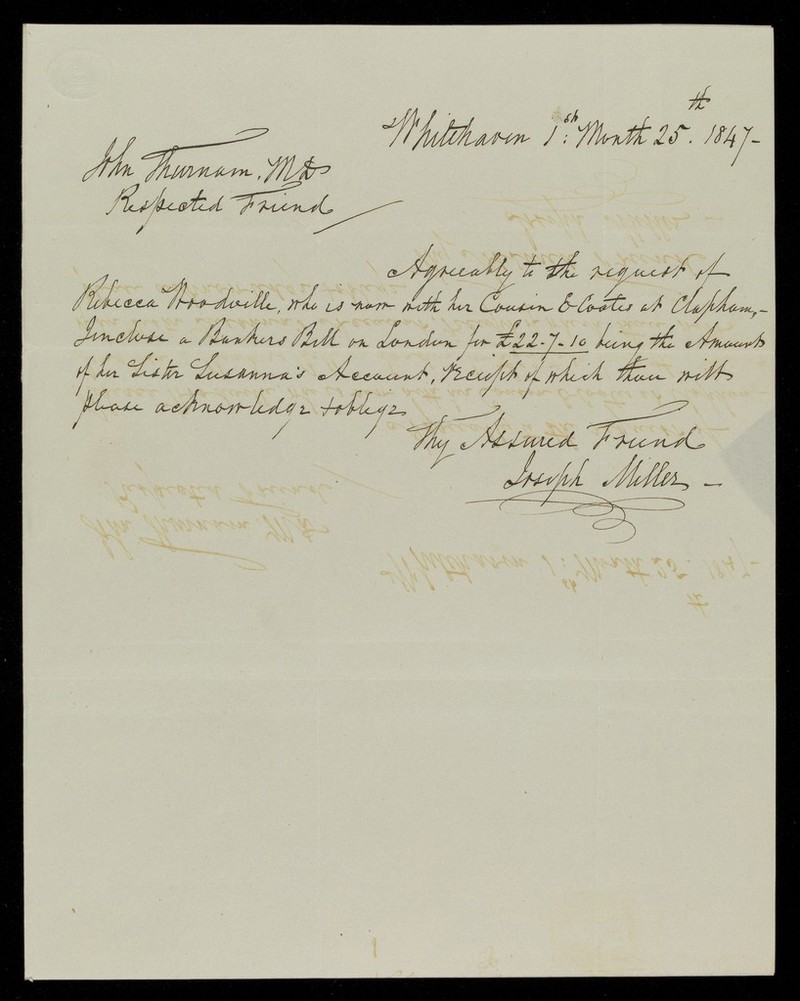 Whitehaven 1st: Month 25th. 1847-
John Thurnam, MD
Respected Friend
Agreeably to the request of
Rebecca Woodville, who is now with her Cousin E Coates at Clapham,-
I inclose a Bankers Bill on London for £22-7-10 being the Amount
of her Sister Susanna's Account, receipt of which thou wilt
please acknowledge & oblige
Thy Assured Friend
Joseph Miller -